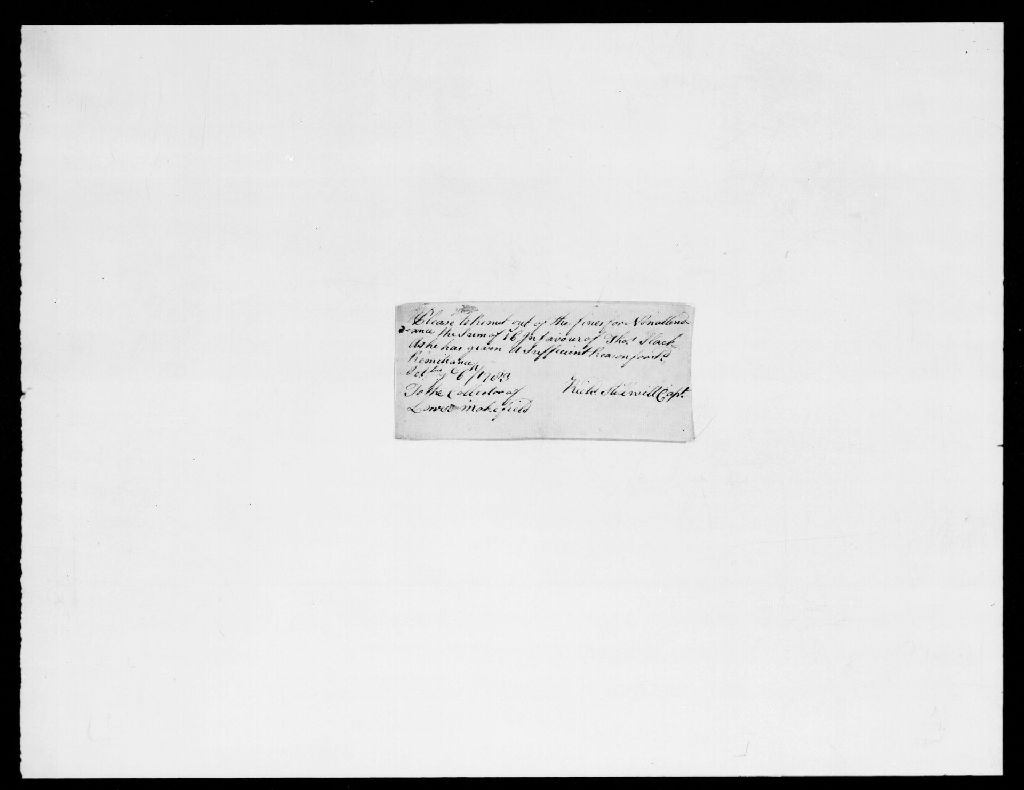 Please to Remit out of the fines for Nonattend
=ance the Sum of in favour of Thos. Slack
As he has given A Sufficient Reason for
Remittance
6th 1783
To the Collector of Richd Stilwill Capt.
Lower Makefield